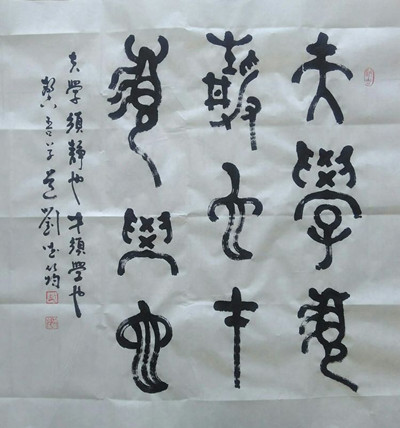 夫學須
靜也才
須學也
夫學須靜也才須學也
劉